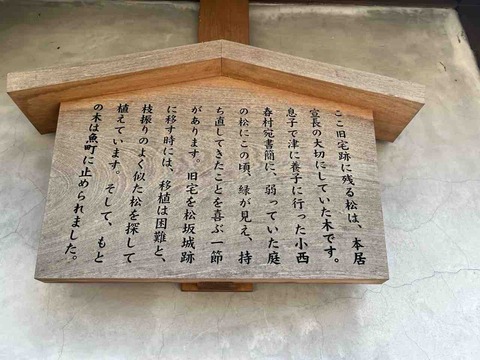 ここ旧宅跡に残る松は、本居
宣長の大切にしていた木です。
息子で津に養子に行った小西
春村宛書簡に、弱っていた庭
の松にこの頃、緑が見え、持
ち直してきたことを喜ぶ一節
があります。旧宅を松坂城跡
に移す時には、移植は困難と、
枝振りのよく似た松を探して
植えています。そして、もと
の木は魚町に止められました。